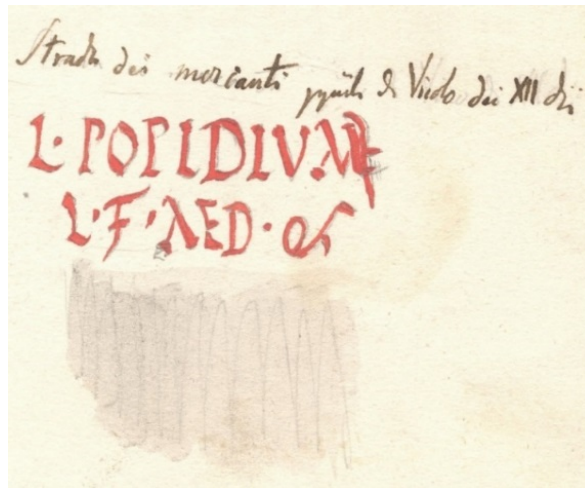 Strada dei mercanti il Vicolo dei XII dei
L·POPIDIVM
L·F·AED·OF